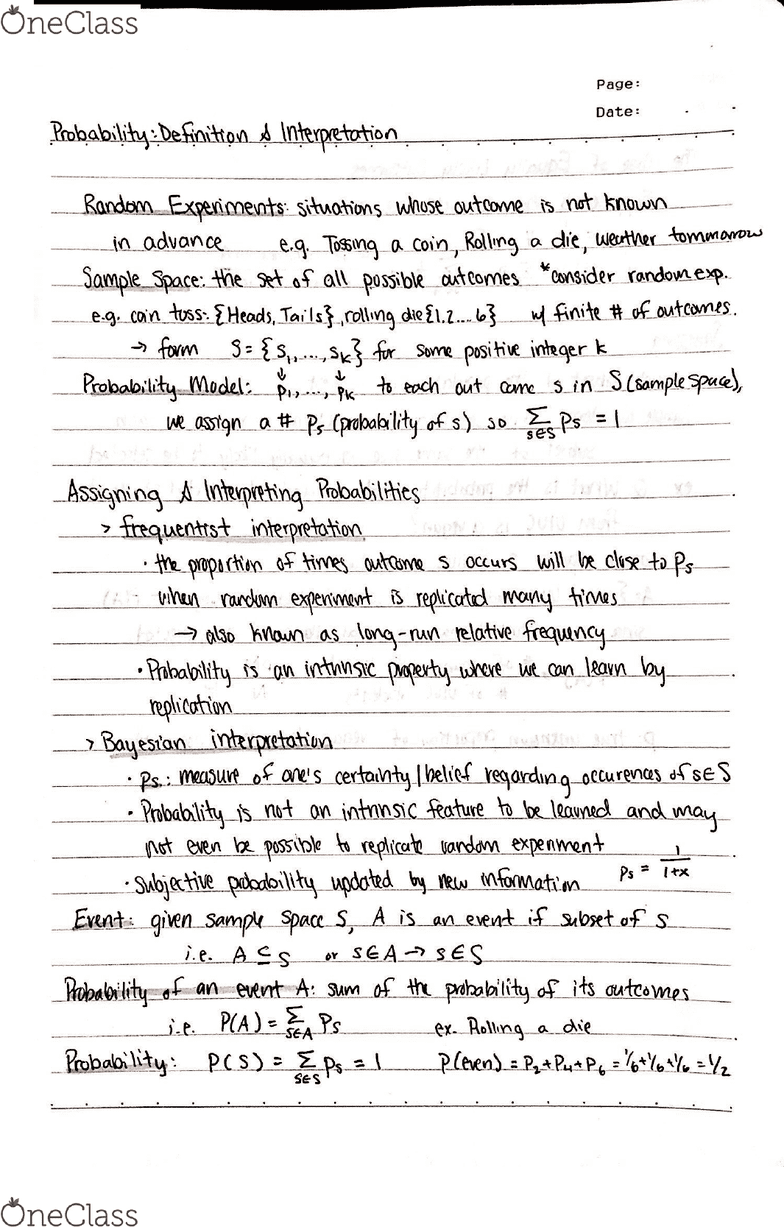 OneClass
Page:
Date:
Probability: Definition & Interpretation
Random Experiments: situations whose outcome is not known
in advance e.g. Tossing a coin, Rolling a die, weather tommorrow
Sample Space: the set of all possible outcomes *consider random exp.
e.g. coin toss: {Heads, Tails}, rolling die {1,2....6} w/ finite # of outcomes.
→ form S = {s₁,...,sₖ} for some positive integer k
↓ ↓
Probability Model: p₁,..., pₖ to each out come s in S (sample space),
we assign a # Pₛ (probability of s) so Σ_{s∈S} Pₛ = 1
Assigning & Interpreting Probabilities
> frequentist interpretation
· the proportion of times outcome s occurs will be close to Pₛ
when random experiment is replicated many times
→ also known as long-run relative frequency
· Probability is an intrinsic property where we can learn by
replication
> Bayesian interpretation
· Pₛ: measure of one's certainty/belief regarding occurences of s∈S
· Probability is not an intrinsic feature to be learned and may
not even be possible to replicate random experiment
· Subjective probability updated by new information Pₛ = 1/(1+x)
Event: given sample space S, A is an event if subset of S
i.e. A ⊆ S or s∈A → s∈S
Probability of an event A: sum of the probability of its outcomes
i.e. P(A) = Σ_{s∈A} Pₛ ex. Rolling a die
Probability: P(S) = Σ_{s∈S} Pₛ = 1 P(even) = P₂+P₄+P₆ = 1/6+1/6+1/6 = 1/2
OneClass